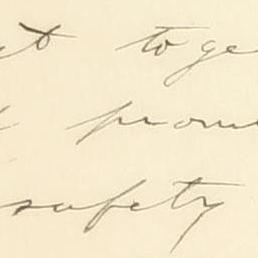 to ge
prom
safety